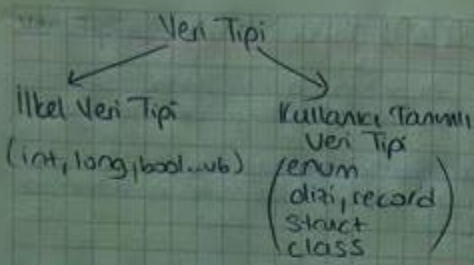 Veri Tipi
İlkel Veri Tipi
(int, long, bool...vb)
Kullanıcı Tanımlı
Veri Tipi
(enum
dizi, record
struct
class)